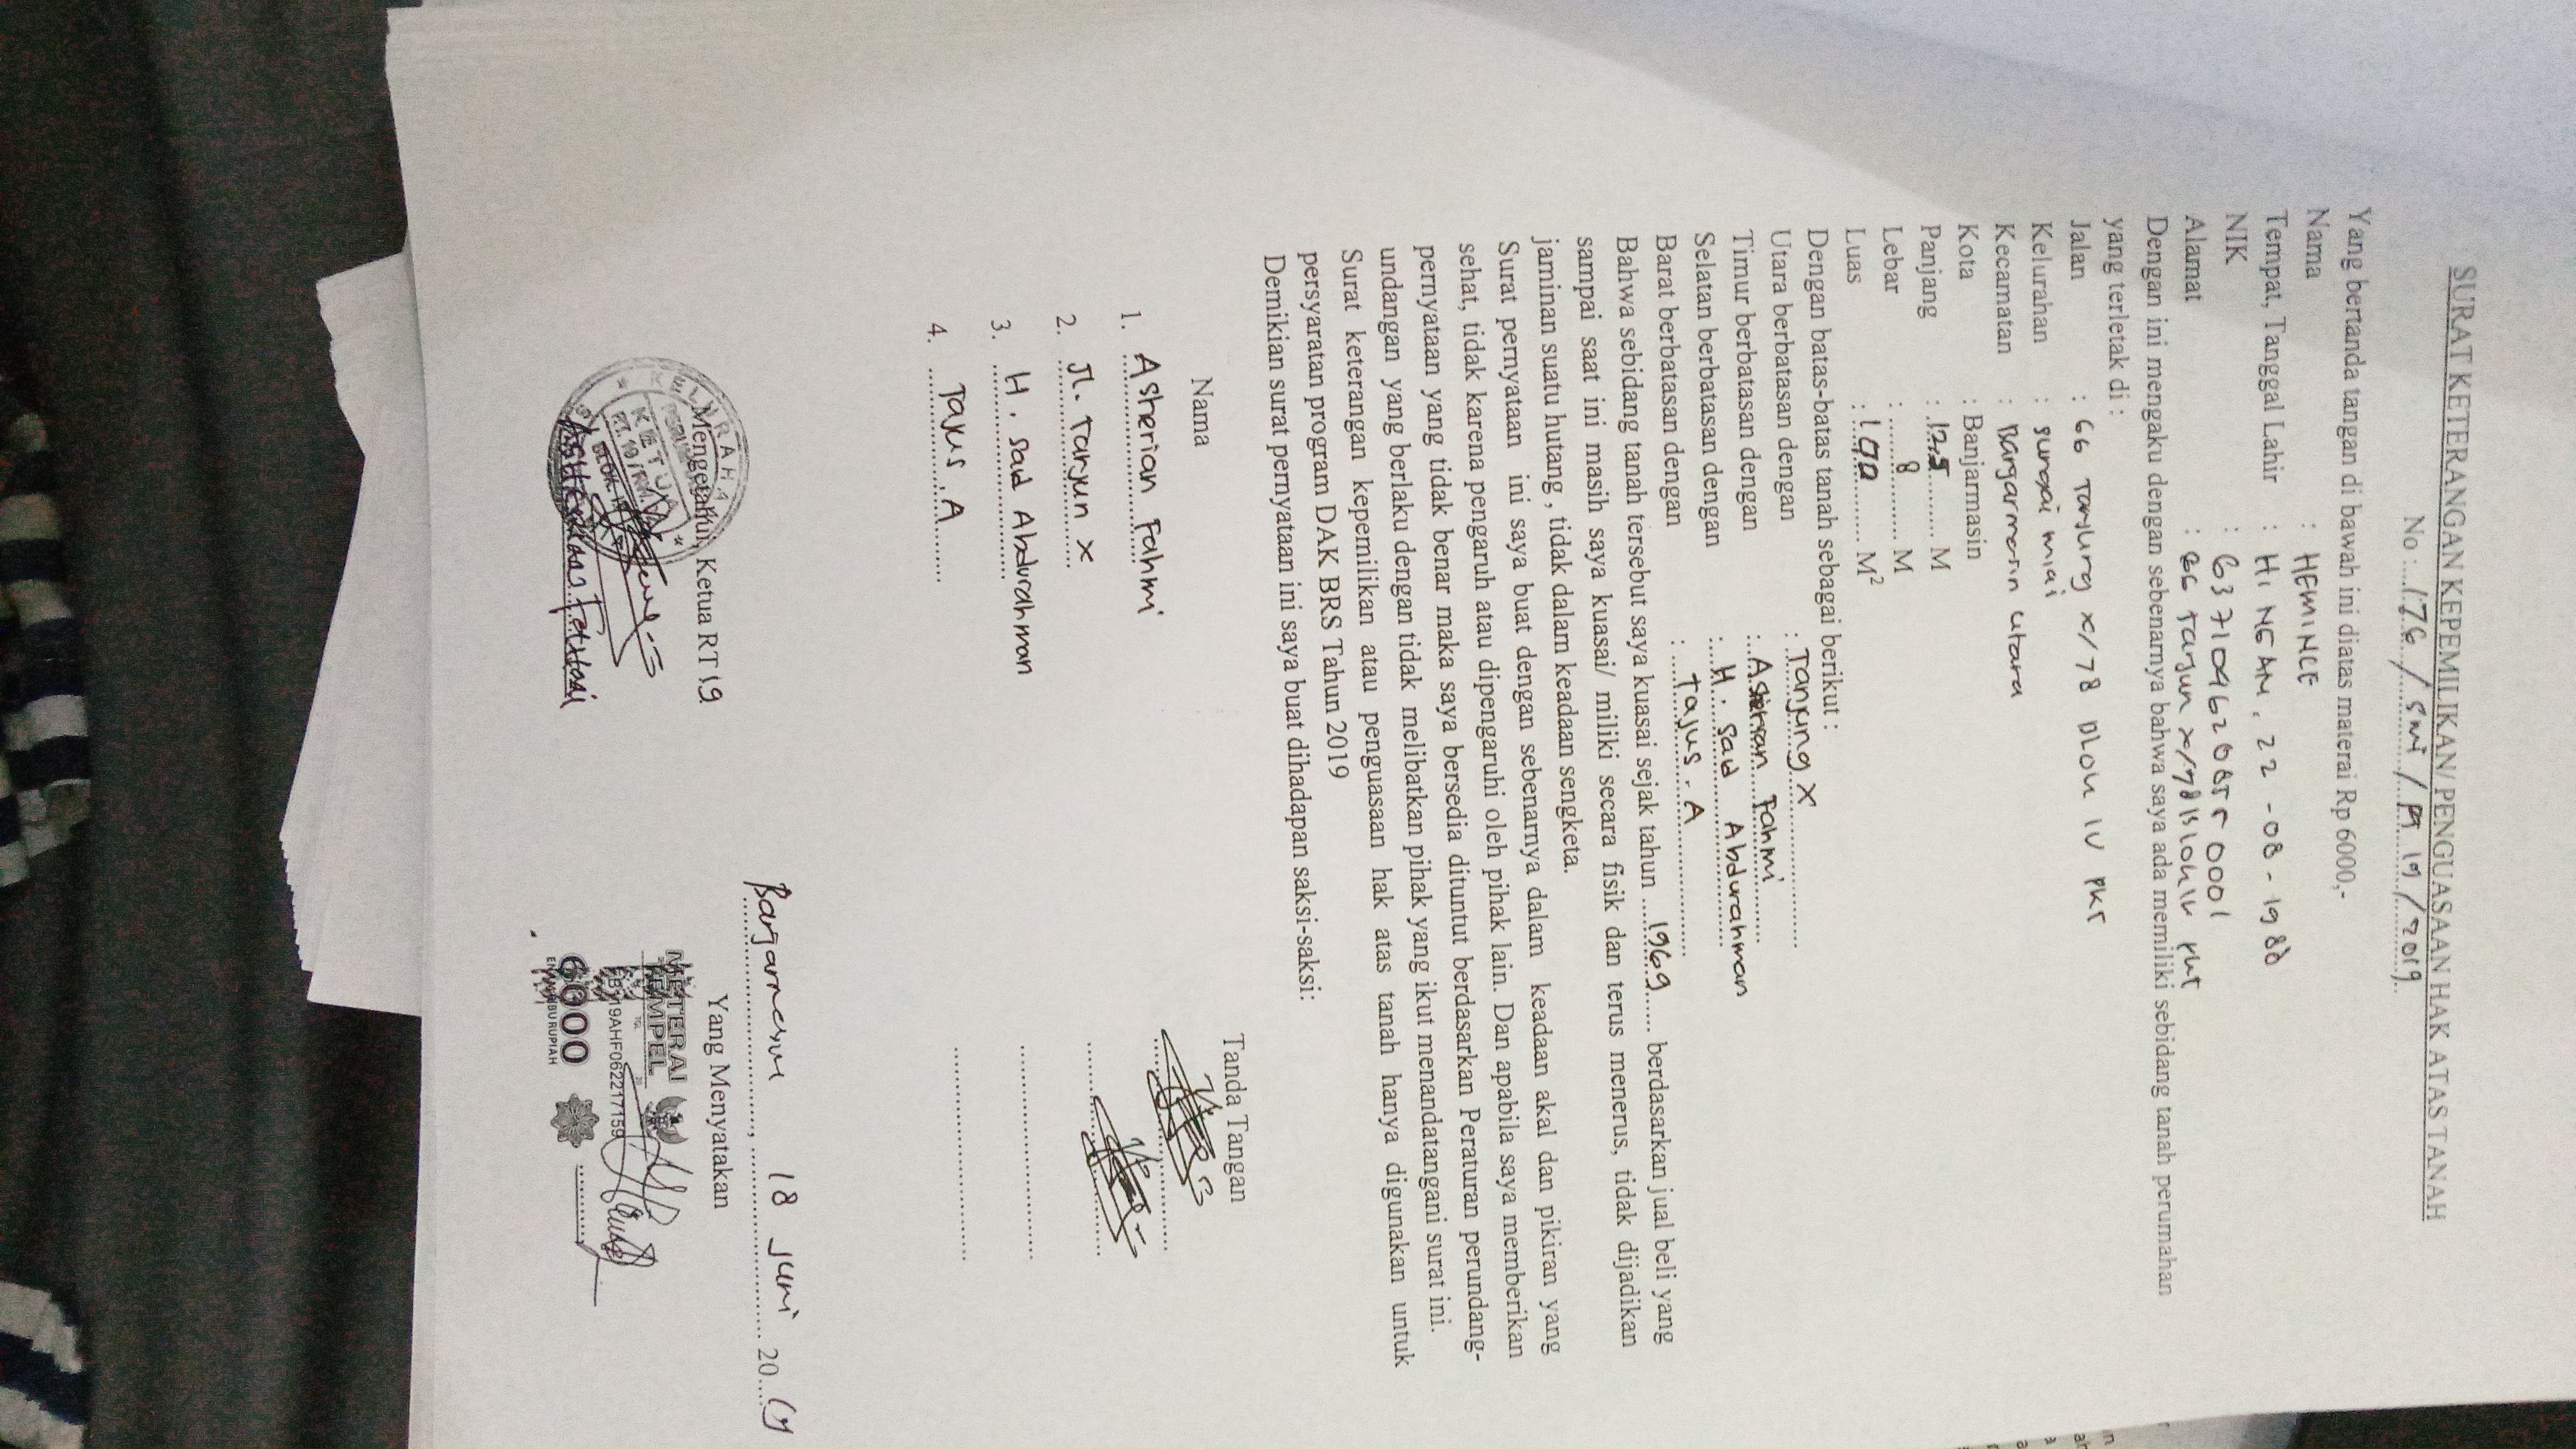 SURAT KETERANGAN KEPEMILIKAN/ PENGUASAAN HAK ATAS TANAH
No : 176 / SMI / RT 19 / 2019
Yang bertanda tangan di bawah ini diatas materai Rp 6000,-
Nama : HEMINCE
Tempat, Tanggal Lahir : HI NEAN, 22 - 08 - 1988
NIK :
Alamat :
Dengan ini mengaku dengan sebenarnya bahwa saya ada memiliki sebidang tanah perumahan
yang terletak di :
Jalan : GG Tanjung X/78 BLOK IV
Kelurahan : Sungai miai
Kecamatan : Banjarmasin Utara
Kota : Banjarmasin
Panjang : 12,5 M
Lebar : 8 M
Luas : 100 M²
Dengan batas-batas tanah sebagai berikut :
Utara berbatasan dengan : Tanjung X
Timur berbatasan dengan : Asherian Fahmi
Selatan berbatasan dengan : H. Sad Abdurahman
Barat berbatasan dengan : Tajus. A
Bahwa sebidang tanah tersebut saya kuasai sejak tahun 1969 berdasarkan jual beli yang
sampai saat ini masih saya kuasai/ miliki secara fisik dan terus menerus, tidak dijadikan
jaminan suatu hutang , tidak dalam keadaan sengketa.
Surat pernyataan ini saya buat dengan sebenarnya dalam keadaan akal dan pikiran yang
sehat, tidak karena pengaruh atau dipengaruhi oleh pihak lain. Dan apabila saya memberikan
pernyataan yang tidak benar maka saya bersedia dituntut berdasarkan Peraturan perundang-
undangan yang berlaku dengan tidak melibatkan pihak yang ikut menandatangani surat ini.
Surat keterangan kepemilikan atau penguasaan hak atas tanah hanya digunakan untuk
persyaratan program DAK BRS Tahun 2019
Demikian surat pernyataan ini saya buat dihadapan saksi-saksi:
Nama Tanda Tangan
1. Asherian Fahmi
2. Jl. Tanjun X
3. H. Sad Abdurahman
4. Tajus. A
Banjarmasin, 18 Juni 20
Mengetahui, Ketua RT 19 Yang Menyatakan
KELURAHAN
KETUA
METERAI
TEMPEL
6000
ENAM RIBU RUPIAH